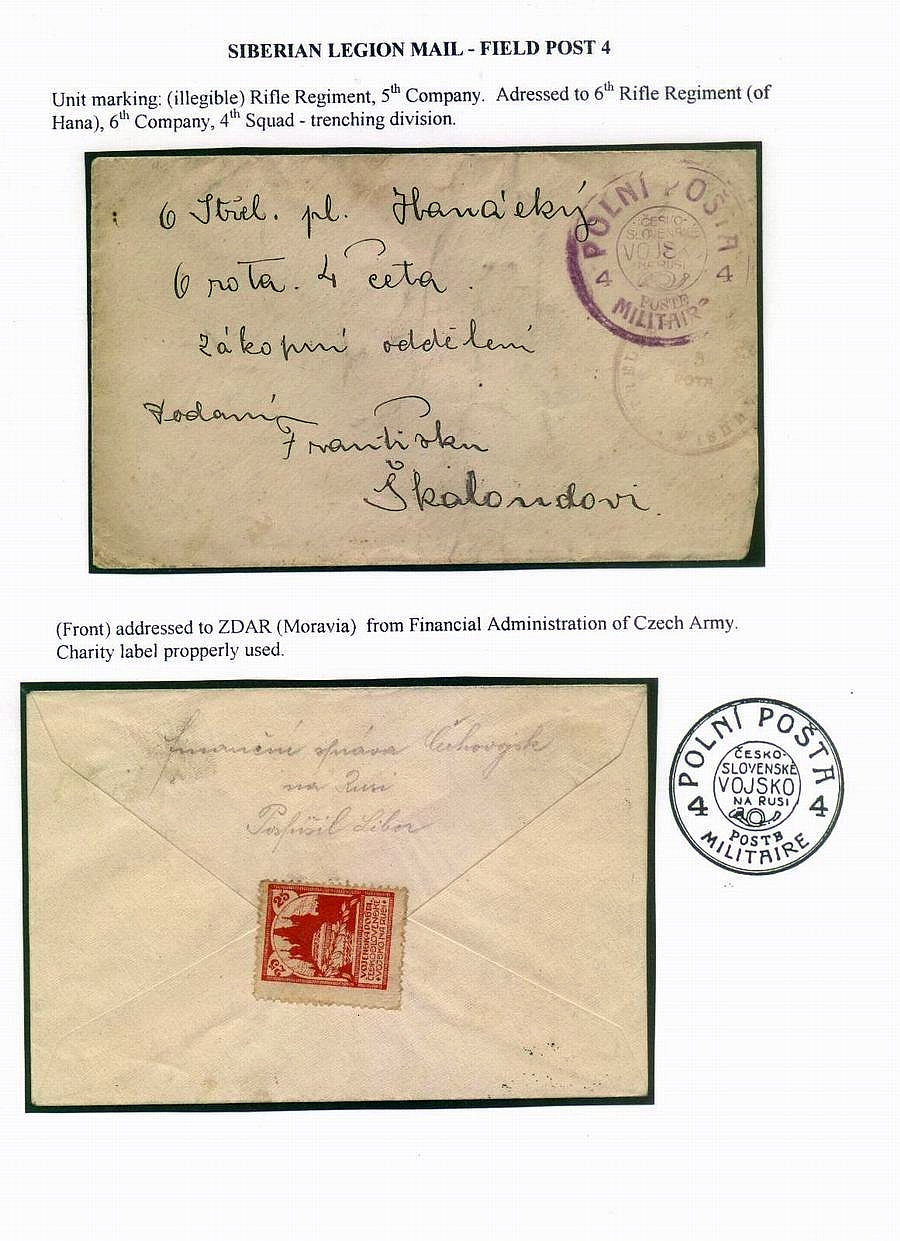 SIBERIAN LEGION MAIL - FIELD POST 4
Unit marking: (illegible) Rifle Regiment, 5th Company. Adressed to 6th Rifle Regiment (of
Hana), 6th Company, 4th Squad - trenching division.
6 Střel. pl. Hanácký
6 rota. 4 četa.
Zákopní oddělení
Františku
Škaloudovi.
POLNÍ POŠTA
4 4
ČESKO-
SLOVENSKÉ
VOJSKO
NA RUSI
POSTE
MILITAIRE
ROTA
(Front) addressed to ZDAR (Moravia) from Financial Administration of Czech Army.
Charity label propperly used.
Finanční správa Čehovojsk
na Rusi
Pospíšil Libor
25
25
VOJENSKÁ POŠTA
ČESKOSLOVENSKÉ
VOJSKO NA RUSI
POLNÍ POŠTA
4 4
ČESKO-
SLOVENSKÉ
VOJSKO
NA RUSI
POSTE
MILITAIRE